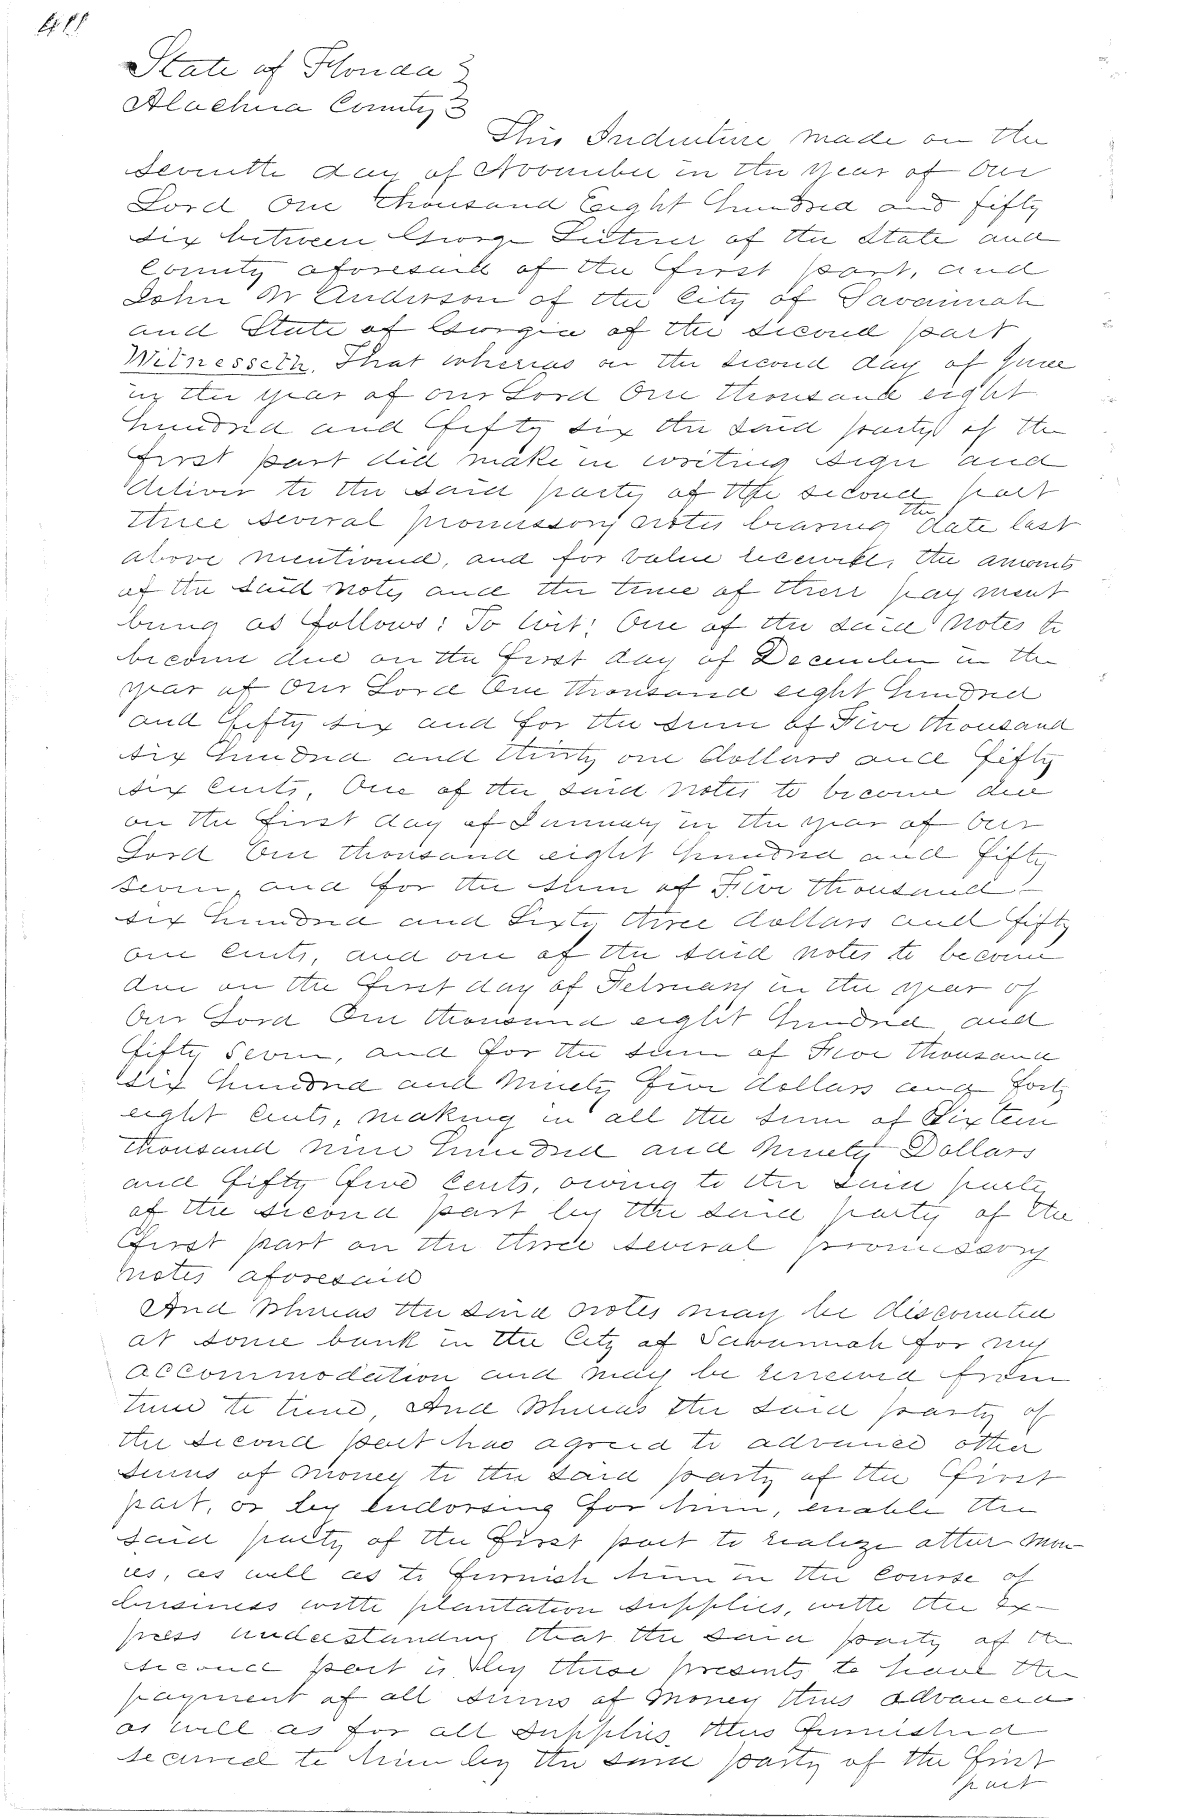 State of Florida }
Alachua County }
This Indenture made on the
seventh day of November in the year of Our
Lord One thousand Eight hundred and fifty
six between George Leitner of the State and
County aforesaid of the first part, and
John W Anderson of the City of Savannah
and State of Georgia of the second part
Witnesseth, That whereas on the second day of June
in the year of our Lord One thousand eight
hundred and fifty six the said party of the
first part did make in writing sign and
deliver to the said party of the second part
three several promissory notes bearing the date last
above mentioned, and for value received, the amounts
of the said notes and the time of their pay ment
being as follows: To wit: One of the said notes to
become due on the first day of December in the
year of Our Lord One thousand eight hundred
and fifty six and for the sum of Five thousand
six hundred and thirty one dollars and fifty
six cents, One of the said notes to become due
on the first day of January in the year of Our
Lord One thousand eight hundred and fifty
seven, and for the sum of Five thousand
six hundred and Sixty three dollars and fifty
one cents, and one of the said notes to become
due on the first day of February in the year of
Our Lord One thousand eight hundred and
fifty seven, and for the sum of Five thousand
six hundred and Ninety five dollars and forty
eight cents, making in all the sum of Sixteen
thousand nine hundred and Ninety Dollars
and fifty five cents, owing to the said party
of the second part by the said party of the
first part on the three several promissory
notes aforesaid
And Whereas the said notes may be discounted
at some bank in the City of Savannah for my
accommodation and may be renewed from
time to time, And Whereas the said party of
the second part has agreed to advance other
sums of money to the said party of the first
part, or by endorsing for him, enable the
said party of the first part to realize other mon-
ies, as well as to furnish him in the course of
business with plantation supplies, with the ex-
press understanding that the said party of the
second part is by these presents to have the
payment of all sums of money thus advanced
as well as for all supplies thus furnished
secured to him by the said party of the first
part